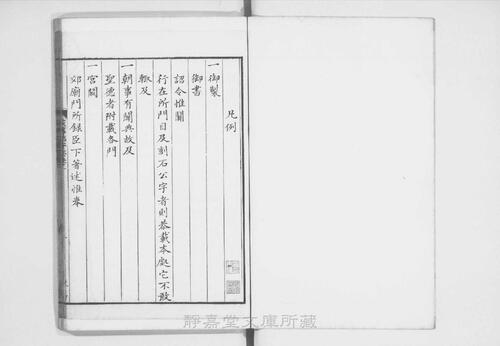 凡例
一御製
御書
詔令惟關
行在所門目及刻石公宇者則恭載本處它不敢
輒及
一朝事有關典故及
聖德者附載各門
一宮闕
郊廟門所錄臣下著述惟奉
靜嘉堂文庫所藏